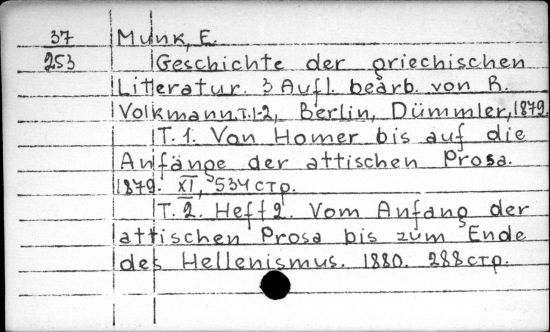 37 Munk, E.
253 Geschichte der griechischen
Litteratur. 3 Aufl. bearb. von R.
Volkmann. T. 1-2, Berlin, Dümmler, 1879.
T. 1. Von Homer bis auf die
Anfänge der attischen Prosa.
1879. XI, 534 стр.
T. 2. Heft 2. Vom Anfang der
attischen Prosa bis zum Ende
des Hellenismus. 1880. 288 стр.